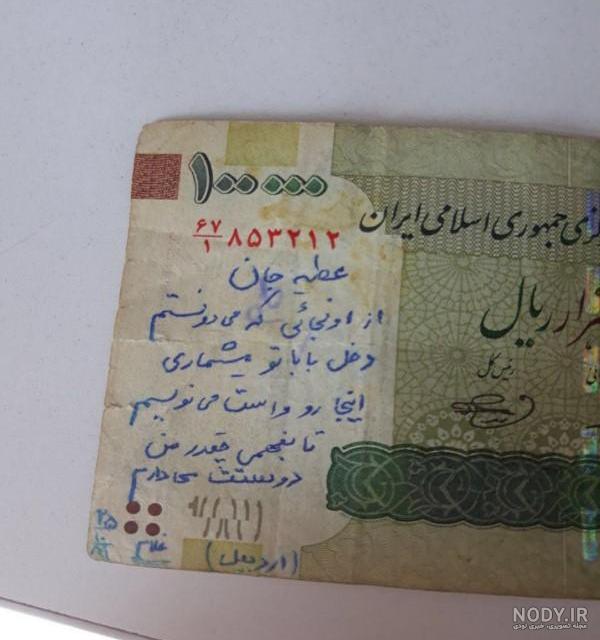 ۱۰۰۰۰۰
رکزی جمهوری اسلامی ایران
۶۷/۱ ۸۵۳۲۱۲
عطیه جان
از اونجائی که می دونستم
هزار ریال
دخل باباتو میشماری
رئیس کل
اینجا رو واست می نویسم
تا بفهمی چقدر من
دوستت دارم
غلام
(اردبیل)
NODY.IR
مجله تصویری، خبری نودی